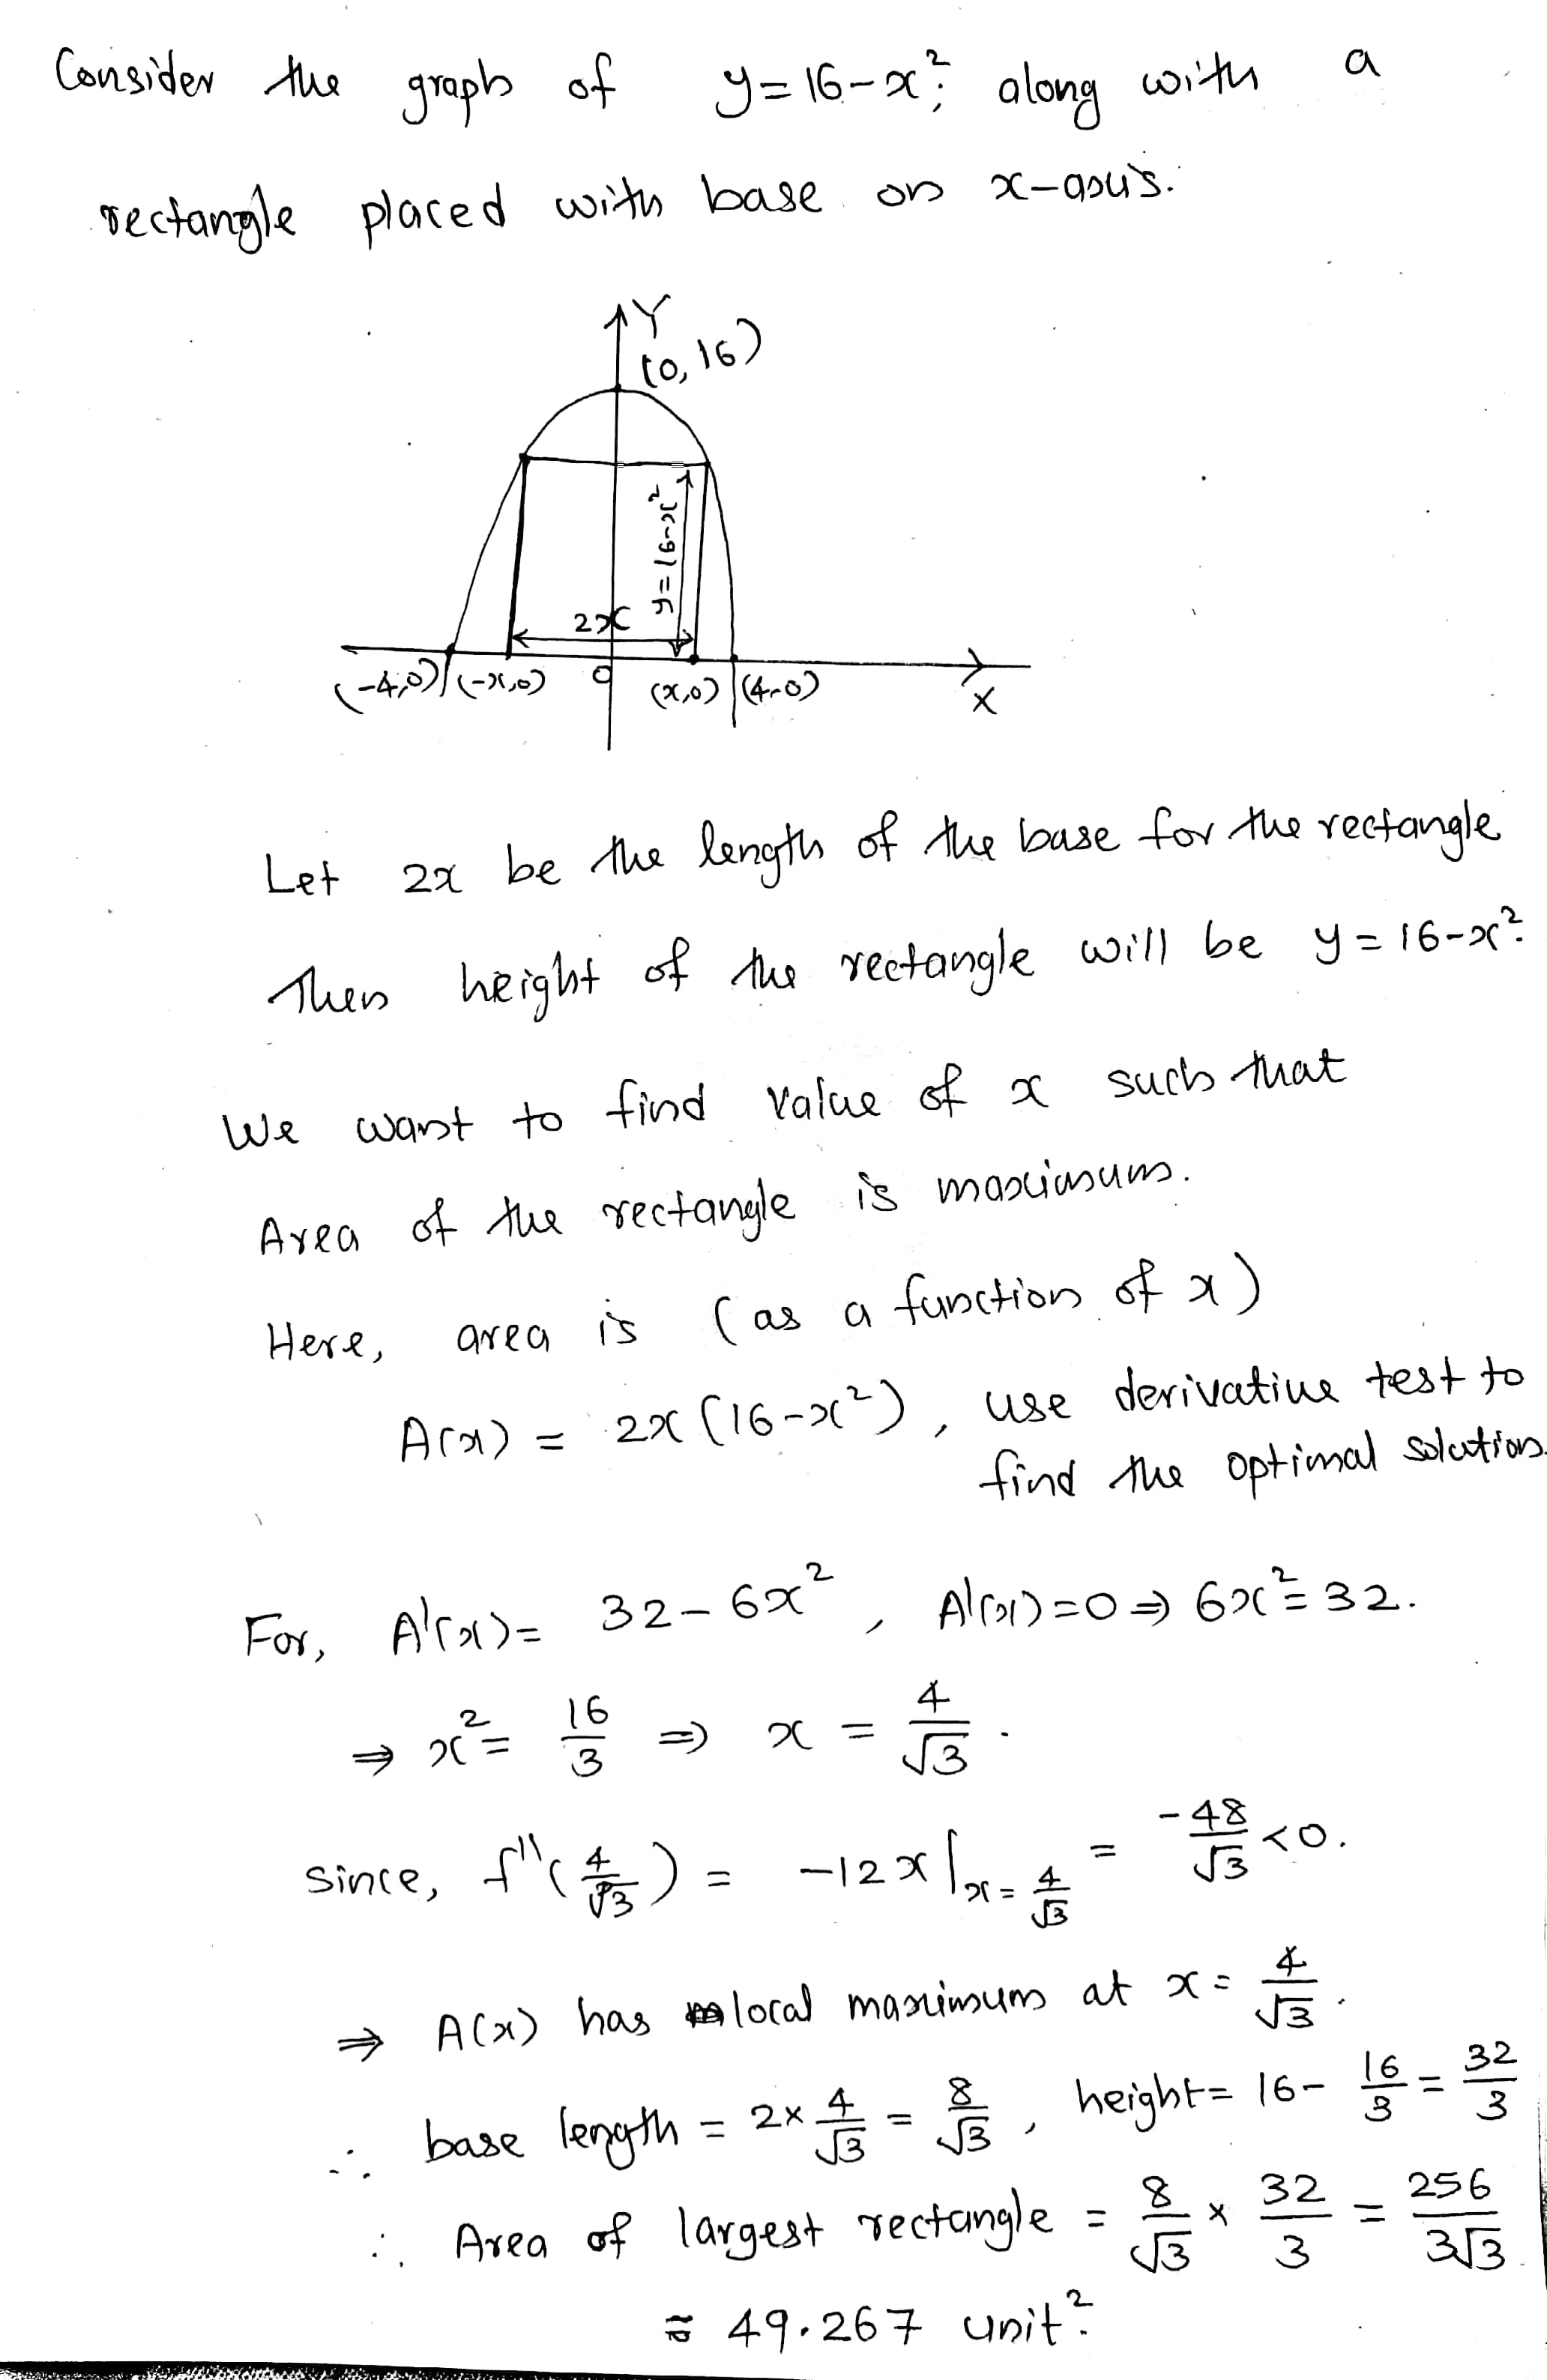 Consider the graph of y=16-x²; along with a
rectangle placed with base on x-axis.
Y
(0,16)
y=16-x²
2x
(-4,0) (-x,0) 0 (x,0) (4,0)
X
Let 2x be the length of the base for the rectangle
Then height of the rectangle will be y=16-x².
We want to find value of x such that
Area of the rectangle is maximum.
Here, area is (as a function of x)
A(x) = 2x(16-x²), use derivative test to
find the optimal solution.
For, A'(x)= 32-6x², A'(x)=0 ⇒ 6x²=32.
⇒ x² = 16/3 ⇒ x = 4/√3.
since, f''(4/√3) = -12x|x=4/√3 = -48/√3 <0.
⇒ A(x) has local maximum at x= 4/√3.
∴ base length = 2× 4/√3 = 8/√3, height= 16- 16/3 = 32/3
∴ Area of largest rectangle = 8/√3 × 32/3 = 256/3√3
≅ 49.267 unit².